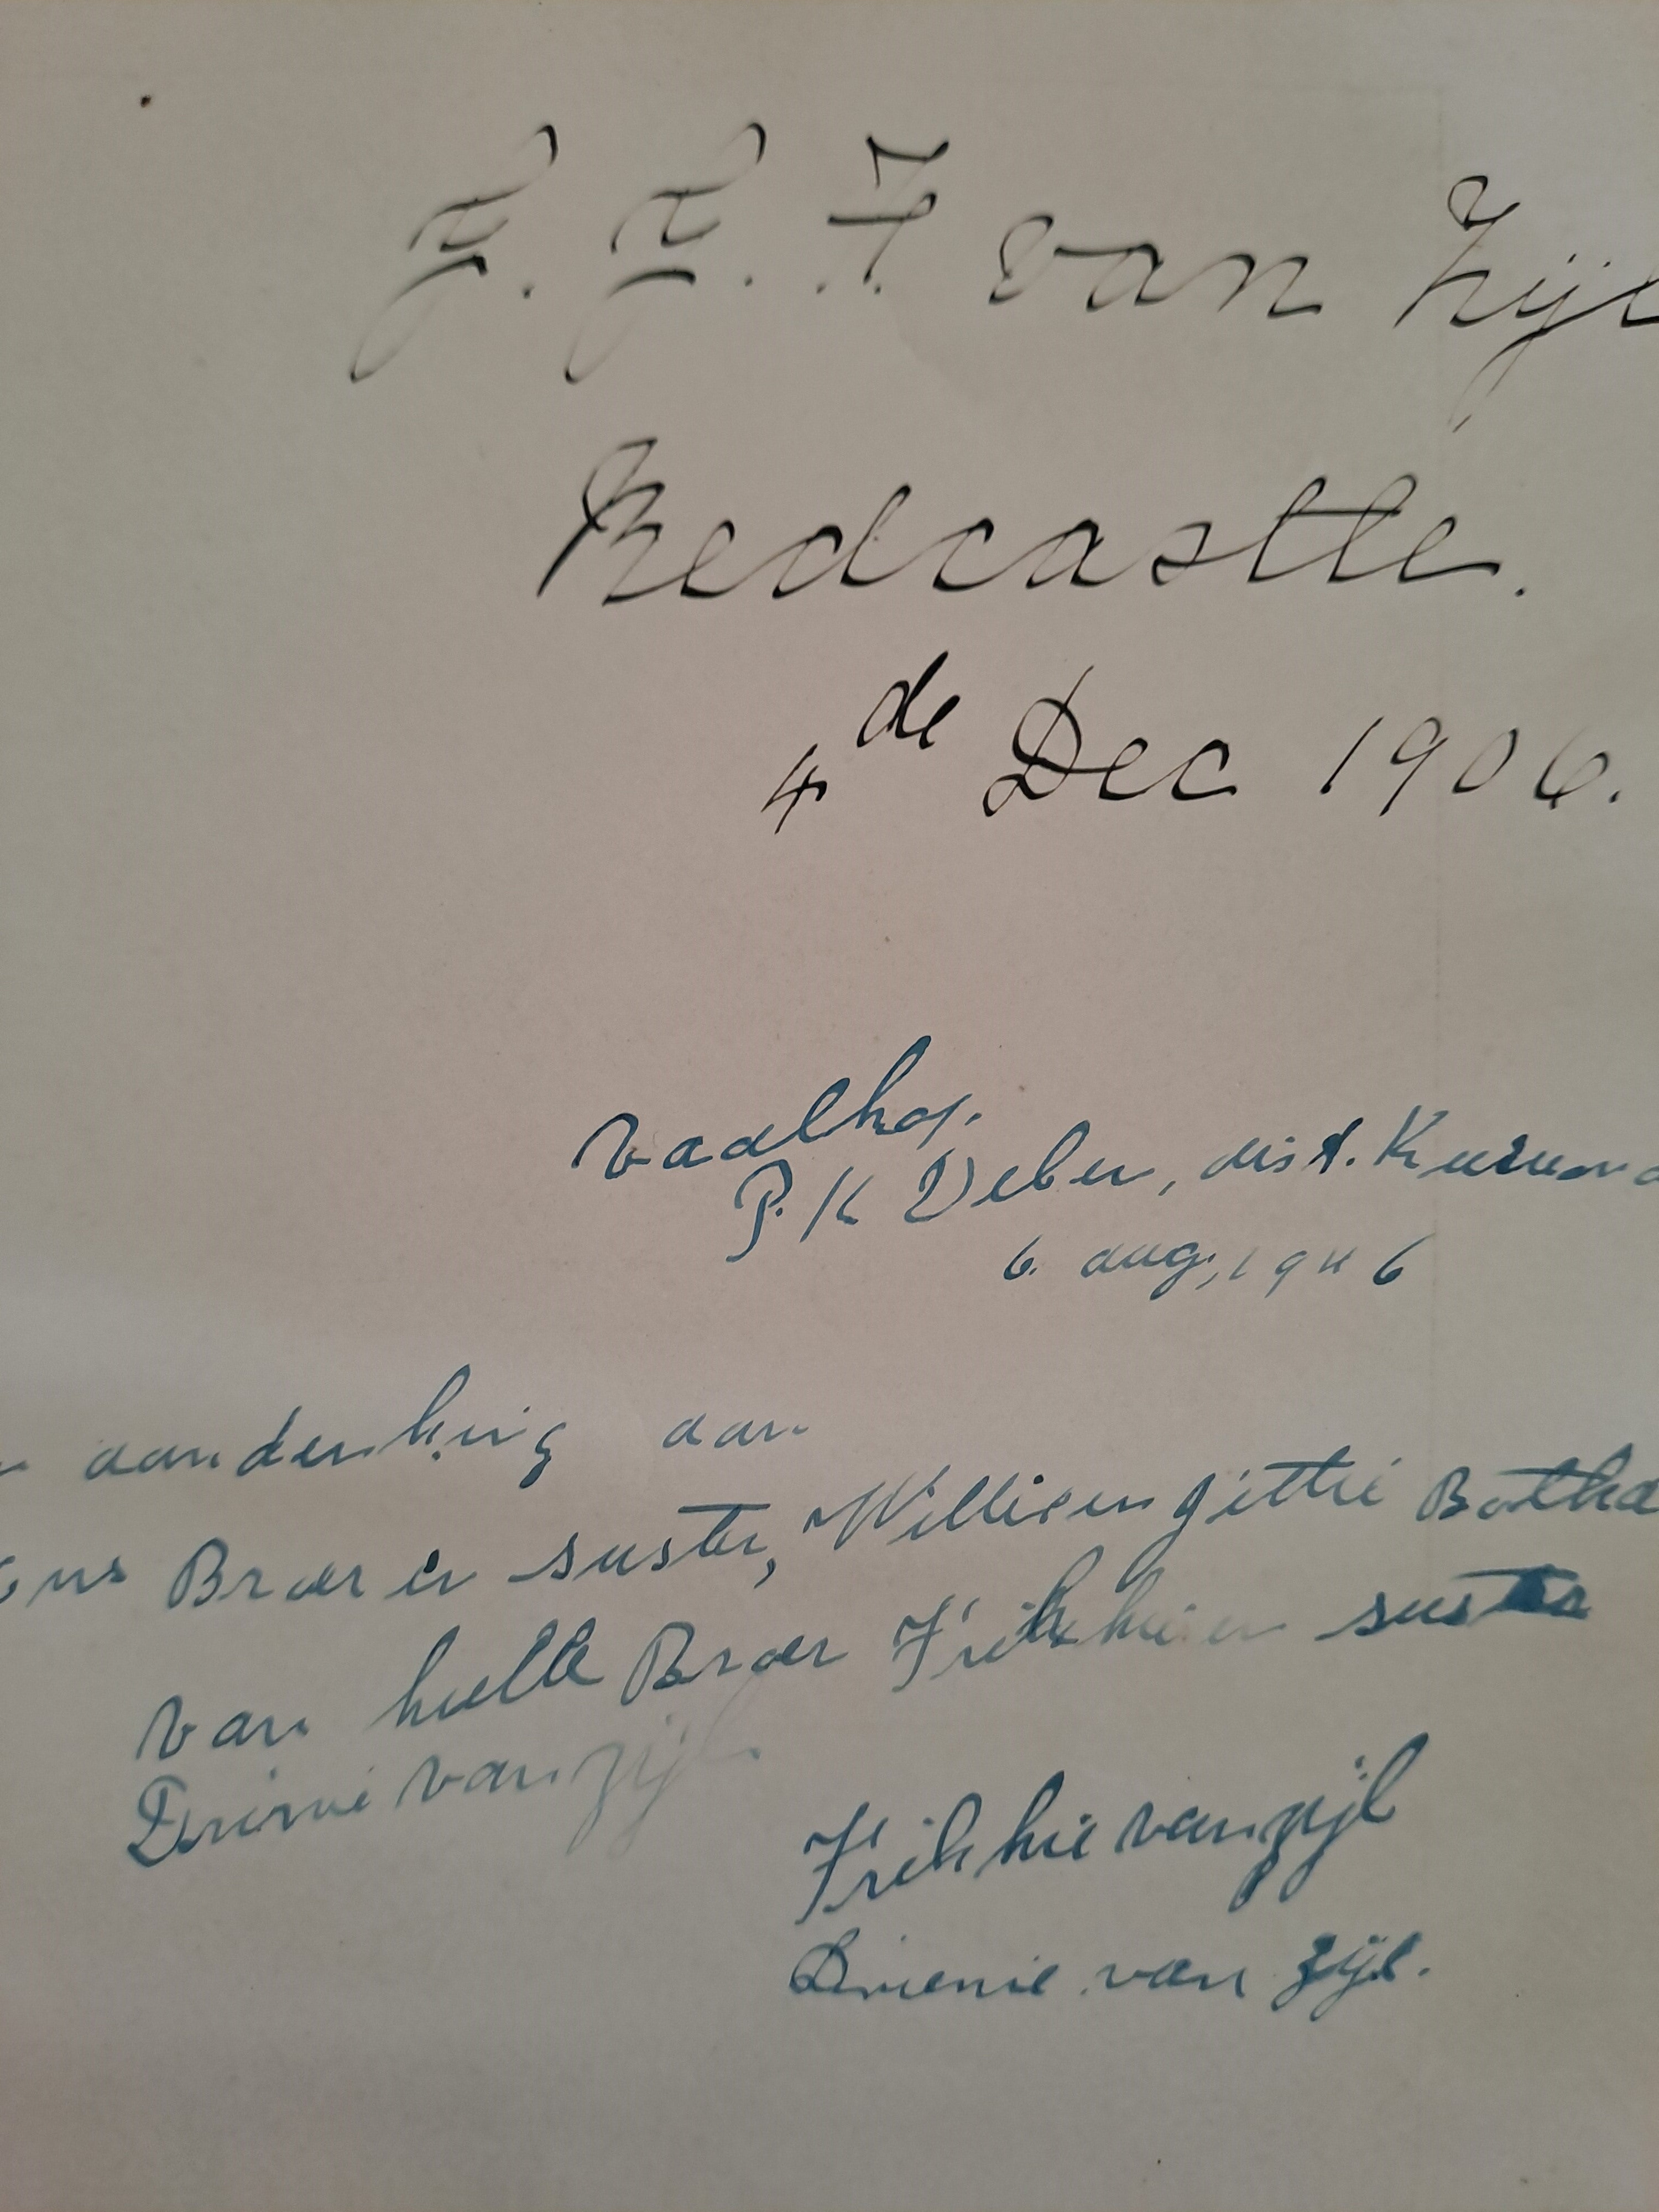 J. J. F van Zijl
Redcastle.
4de Dec 1906.
Vaalhof.
P. K Deben, dist. Kuruma
6. aug, 1946
aandenking aan
ons Broer en suster, Willie en Gittie Botha
van hulle Broer Frikkie en suster
Drienie van Zijl.
Frikkie van Zijl
Drienie van Zijl.